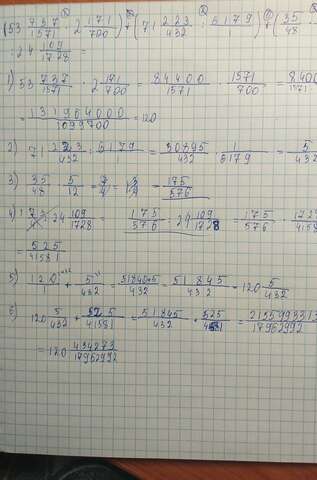 (53 737/1571 : 2 171/700) + (71 223/432 : 5179) + (35/48
: 24 109/1728 =
1) 53 737/1571 : 2 171/700 = 84000/1571 · 1571/700 = 8400/1571
= 131964000/1099700 = 120
2) 71 223/432 : 5179 = 30895/432 · 1/5179 = 5/432
3) 35/48 · 5/12 = = 175/576
4) : 24 109/1728 = 175/576 : 24 109/1728 = 175/576 · 1728/4158
= 525/41581
5) 120/1 + 5/432 = 51840+5/432 = 51845/432 = 120 5/432
6) 120 5/432 + 525/41581 = 51845/432 + 525/41581 = 215599331
= 120 434273/17962992